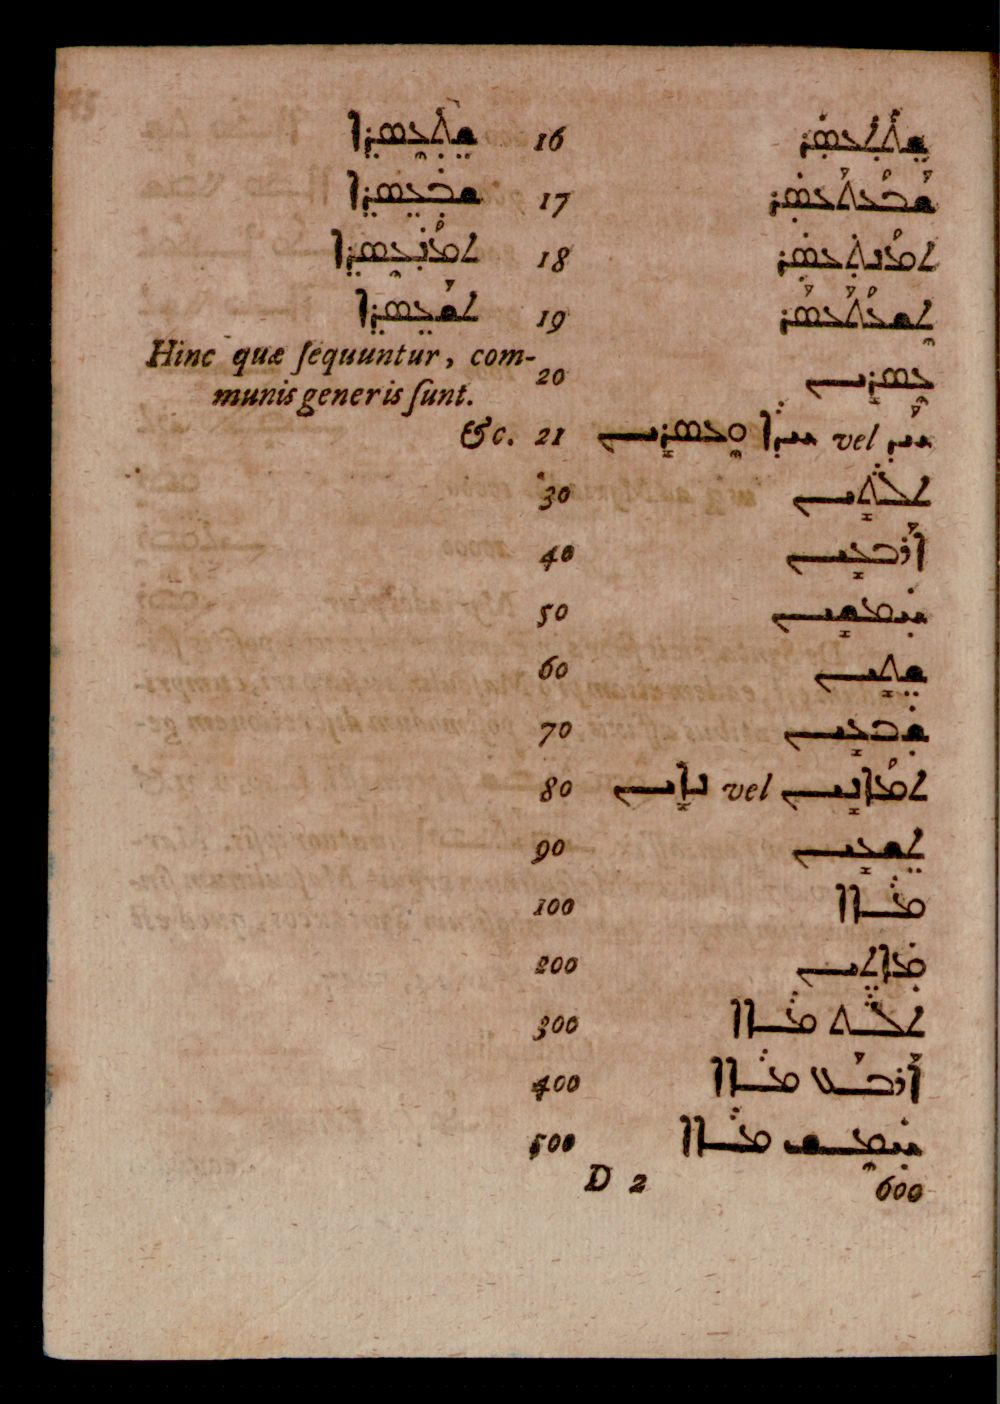 ܫܬܥܣܪܐ 16 ܫܬܬܥܣܪ
ܫܒܥܣܪܐ 17 ܫܒܥܬܥܣܪ
ܬܡܢܥܣܪܐ 18 ܬܡܢܬܥܣܪ
ܬܫܥܣܪܐ 19 ܬܫܥܬܥܣܪ
Hinc quæ sequuntur, com-
munis generis sunt.
20 ܥܣܪܝܢ
&c. 21 ܚܕ vel ܚܕܐ ܘܥܣܪܝܢ
30 ܬܠܬܝܢ
40 ܐܪܒܥܝܢ
50 ܚܡܫܝܢ
60 ܫܬܝܢ
70 ܫܒܥܝܢ
80 ܬܡܐܢܝܢ vel ܢܐܝܢ
90 ܬܫܥܝܢ
100 ܡܐܐ
200 ܡܐܬܝܢ
300 ܬܠܬ ܡܐܐ
400 ܐܪܒܥ ܡܐܐ
500 ܚܡܫ ܡܐܐ
D 2 600